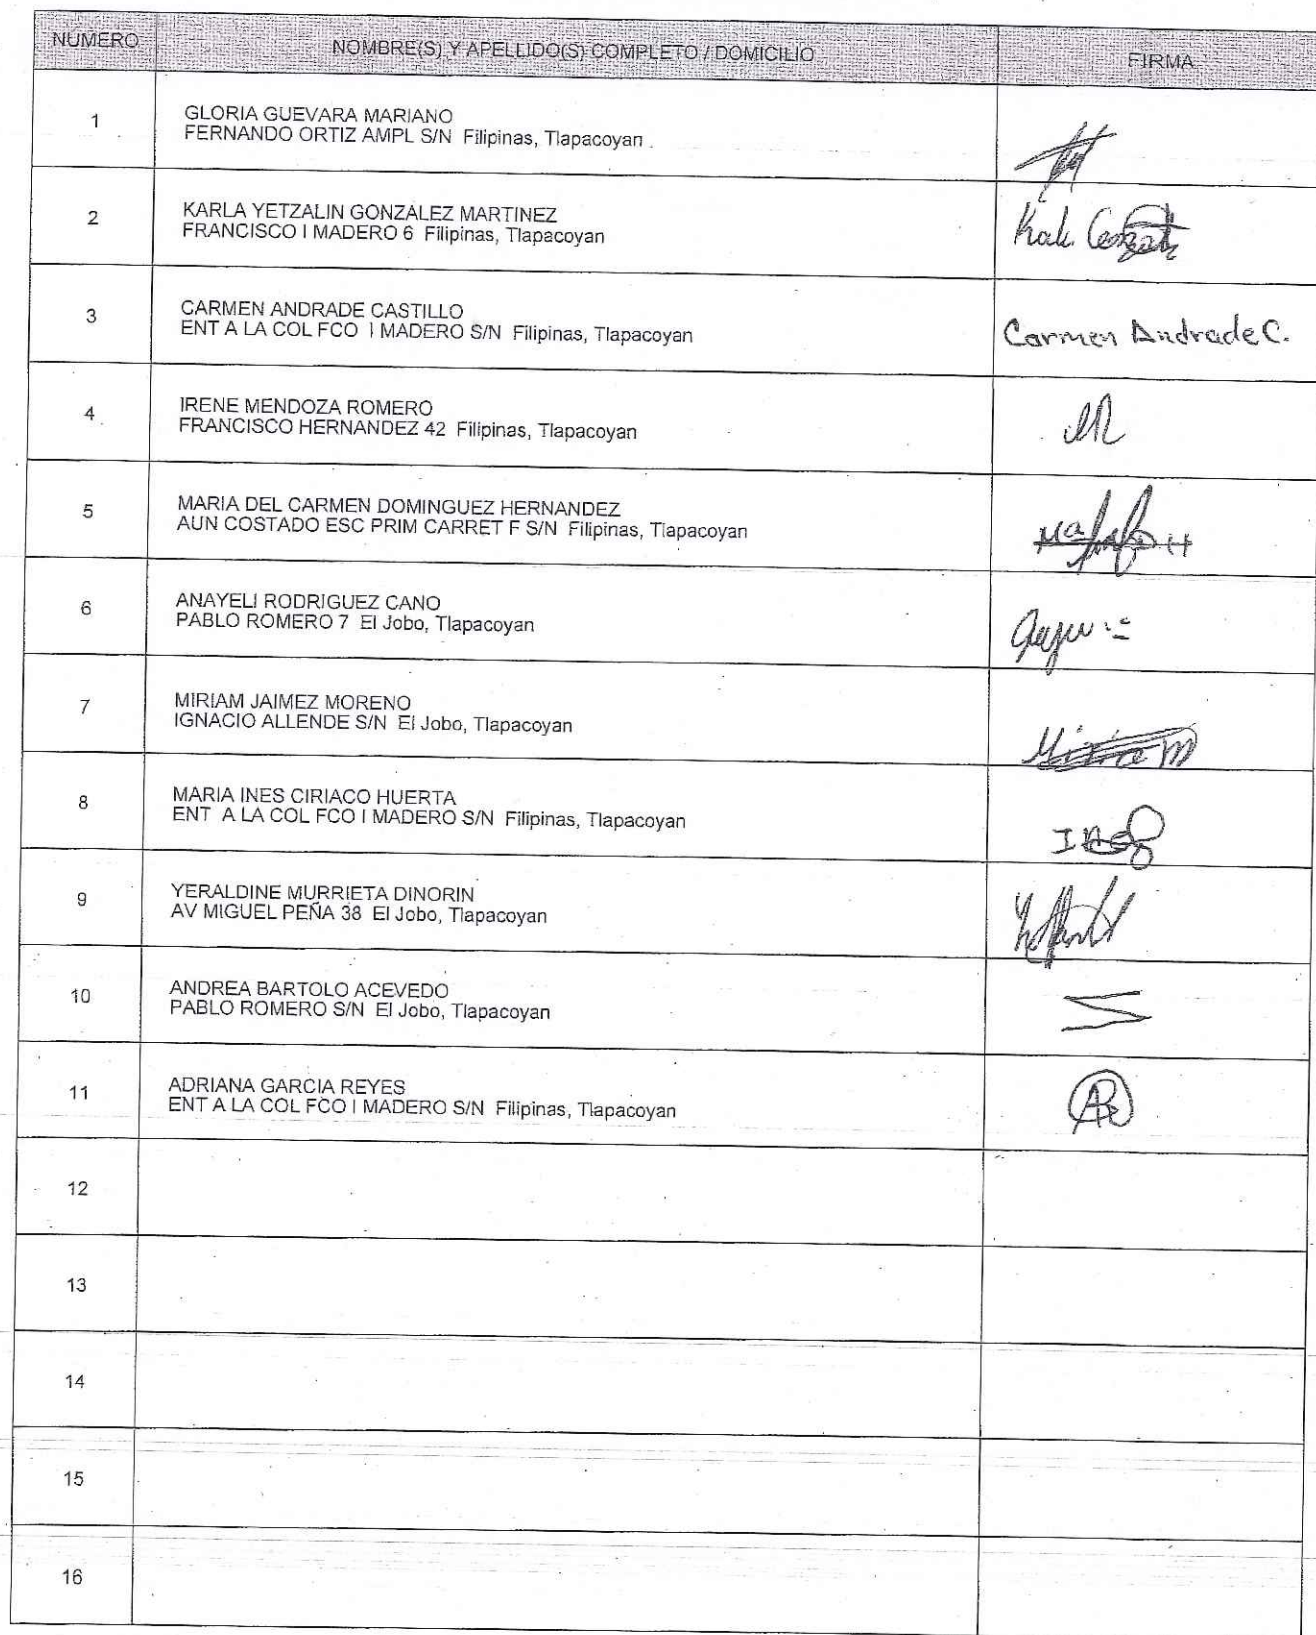 NUMERO NOMBRE(S) Y APELLIDO(S) COMPLETO / DOMICILIO FIRMA
1 GLORIA GUEVARA MARIANO
FERNANDO ORTIZ AMPL S/N Filipinas, Tlapacoyan
2 KARLA YETZALIN GONZALEZ MARTINEZ
FRANCISCO I MADERO 6 Filipinas, Tlapacoyan
3 CARMEN ANDRADE CASTILLO
ENT A LA COL FCO I MADERO S/N Filipinas, Tlapacoyan
Carmen Andrade C.
4 IRENE MENDOZA ROMERO
FRANCISCO HERNANDEZ 42 Filipinas, Tlapacoyan
5 MARIA DEL CARMEN DOMINGUEZ HERNANDEZ
AUN COSTADO ESC PRIM CARRET F S/N Filipinas, Tlapacoyan
6 ANAYELI RODRIGUEZ CANO
PABLO ROMERO 7 El Jobo, Tlapacoyan
7 MIRIAM JAIMEZ MORENO
IGNACIO ALLENDE S/N El Jobo, Tlapacoyan
8 MARIA INES CIRIACO HUERTA
ENT A LA COL FCO I MADERO S/N Filipinas, Tlapacoyan
9 YERALDINE MURRIETA DINORIN
AV MIGUEL PEÑA 38 El Jobo, Tlapacoyan
10 ANDREA BARTOLO ACEVEDO
PABLO ROMERO S/N El Jobo, Tlapacoyan
11 ADRIANA GARCIA REYES
ENT A LA COL FCO I MADERO S/N Filipinas, Tlapacoyan
12
13
14
15
16